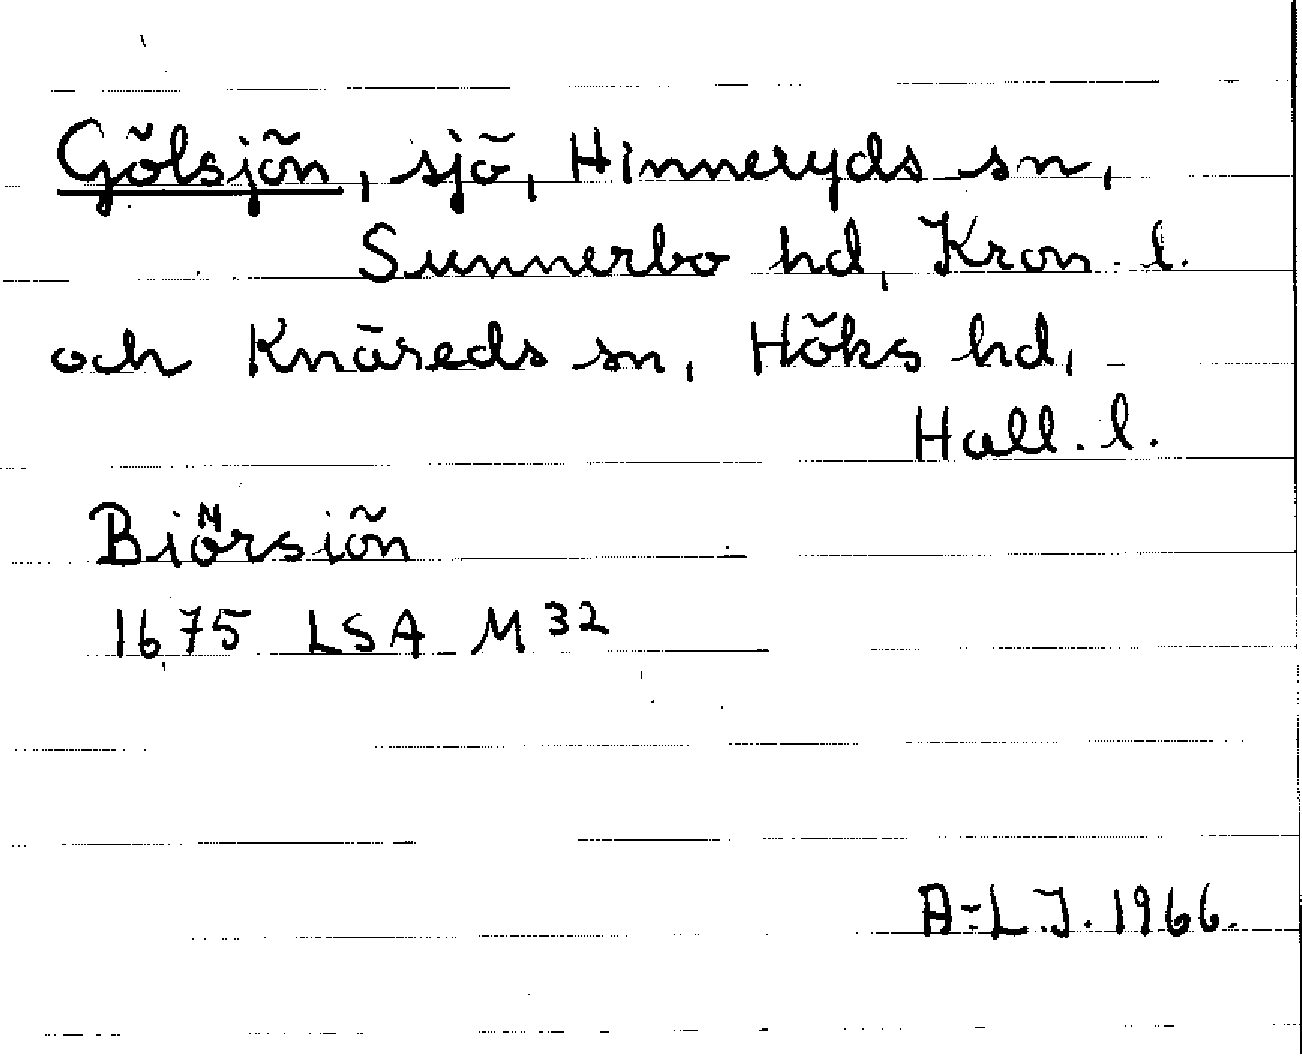 Gölsjön, sjö, Hinneryds sn,
Sunnerbo hd, Kron. l.
och Knäreds sn, Höks hd,
Hall. l.
Biörsiön
1675 LSA M 32
A-L.J. 1966.